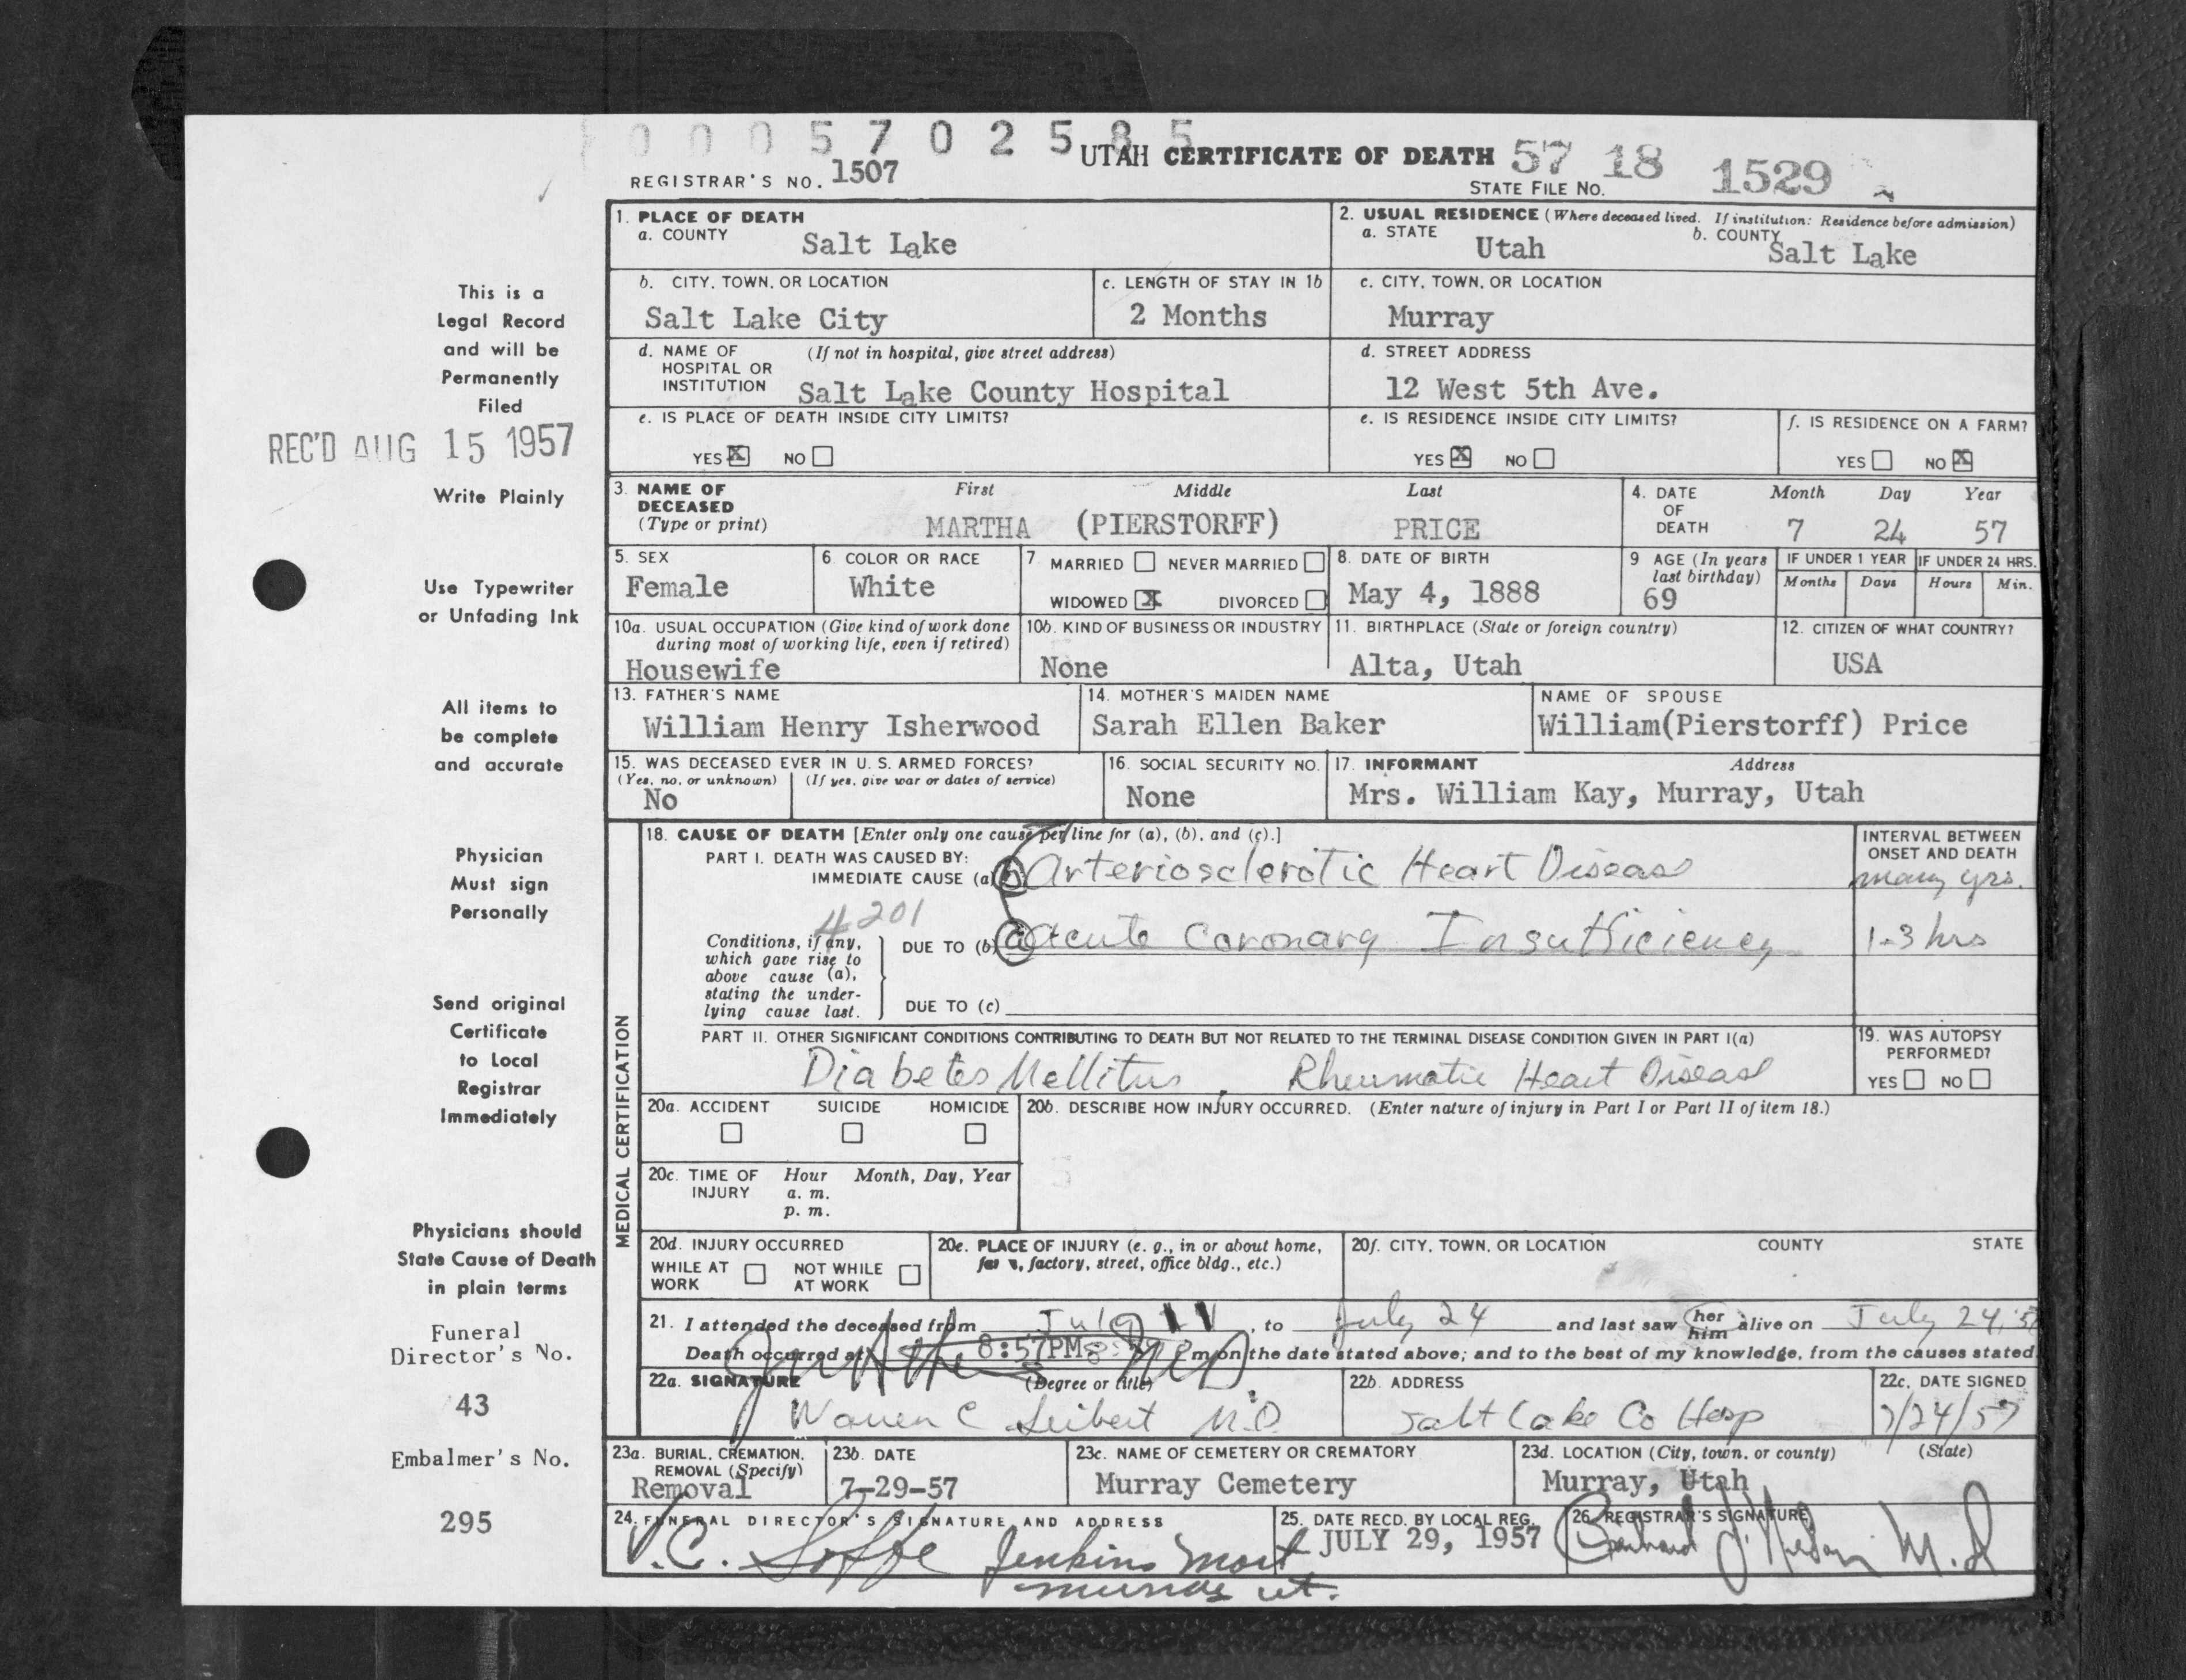 0005702585
UTAH CERTIFICATE OF DEATH 57 18 1529
REGISTRAR'S NO. 1507
STATE FILE NO.
This is a
Legal Record
and will be
Permanently
Filed
REC'D AUG 15 1957
Write Plainly
Use Typewriter
or Unfading Ink
All items to
be complete
and accurate
Physician
Must sign
Personally
Send original
Certificate
to Local
Registrar
Immediately
Physicians should
State Cause of Death
in plain terms
Funeral
Director's No.
43
Embalmer's No.
295
1. PLACE OF DEATH
a. COUNTY Salt Lake
2. USUAL RESIDENCE (Where deceased lived. If institution: Residence before admission)
a. STATE Utah b. COUNTY Salt Lake
b. CITY, TOWN, OR LOCATION
Salt Lake City
c. LENGTH OF STAY IN 1b
2 Months
c. CITY, TOWN, OR LOCATION
Murray
d. NAME OF HOSPITAL OR INSTITUTION (If not in hospital, give street address)
Salt Lake County Hospital
d. STREET ADDRESS
12 West 5th Ave.
e. IS PLACE OF DEATH INSIDE CITY LIMITS?
YES X NO
e. IS RESIDENCE INSIDE CITY LIMITS?
YES X NO
f. IS RESIDENCE ON A FARM?
YES NO X
3. NAME OF DECEASED (Type or print)
First Middle Last
MARTHA (PIERSTORFF) PRICE
4. DATE OF DEATH
Month Day Year
7 24 57
5. SEX
Female
6 COLOR OR RACE
White
7 MARRIED NEVER MARRIED
WIDOWED X DIVORCED
8. DATE OF BIRTH
May 4, 1888
9 AGE (In years last birthday)
69
IF UNDER 1 YEAR
Months Days
IF UNDER 24 HRS.
Hours Min.
10a. USUAL OCCUPATION (Give kind of work done during most of working life, even if retired)
Housewife
10b. KIND OF BUSINESS OR INDUSTRY
None
11. BIRTHPLACE (State or foreign country)
Alta, Utah
12. CITIZEN OF WHAT COUNTRY?
USA
13. FATHER'S NAME
William Henry Isherwood
14. MOTHER'S MAIDEN NAME
Sarah Ellen Baker
NAME OF SPOUSE
William(Pierstorff) Price
15. WAS DECEASED EVER IN U. S. ARMED FORCES?
(Yes, no, or unknown) (If yes, give war or dates of service)
No
16. SOCIAL SECURITY NO.
None
17. INFORMANT Address
Mrs. William Kay, Murray, Utah
MEDICAL CERTIFICATION
18. CAUSE OF DEATH [Enter only one cause per line for (a), (b), and (c).]
INTERVAL BETWEEN ONSET AND DEATH
PART I. DEATH WAS CAUSED BY:
IMMEDIATE CAUSE (a) (b) Arteriosclerotic Heart Disease many yrs.
4201
Conditions, if any,
which gave rise to
above cause (a),
stating the under-
lying cause last.
DUE TO (b) (a) Acute Coronary Insufficiency 1-3 hrs
DUE TO (c)
PART II. OTHER SIGNIFICANT CONDITIONS CONTRIBUTING TO DEATH BUT NOT RELATED TO THE TERMINAL DISEASE CONDITION GIVEN IN PART I(a)
Diabetes Mellitus, Rheumatic Heart Disease
19. WAS AUTOPSY PERFORMED?
YES NO
20a. ACCIDENT SUICIDE HOMICIDE
20b. DESCRIBE HOW INJURY OCCURRED. (Enter nature of injury in Part I or Part II of item 18.)
20c. TIME OF INJURY Hour Month, Day, Year
a. m.
p. m.
20d. INJURY OCCURRED
WHILE AT WORK NOT WHILE AT WORK
20e. PLACE OF INJURY (e. g., in or about home, factory, street, office bldg., etc.)
20f. CITY, TOWN, OR LOCATION COUNTY STATE
21. I attended the deceased from July 11, to July 24 and last saw her him alive on July 24, 5
Death occurred at 8:57PM m on the date stated above; and to the best of my knowledge, from the causes stated
22a. SIGNATURE (Degree or title)
Warren C Seibert M.D.
22b. ADDRESS
Salt Lake Co Hosp
22c. DATE SIGNED
7/24/57
23a. BURIAL, CREMATION, REMOVAL (Specify)
Removal
23b. DATE
7-29-57
23c. NAME OF CEMETERY OR CREMATORY
Murray Cemetery
23d. LOCATION (City, town, or county) (State)
Murray, Utah
24. FUNERAL DIRECTOR'S SIGNATURE AND ADDRESS
V.C. Soffe Jenkins Mort
Murray Ut.
25. DATE RECD. BY LOCAL REG.
JULY 29, 1957
26. REGISTRAR'S SIGNATURE
M.D